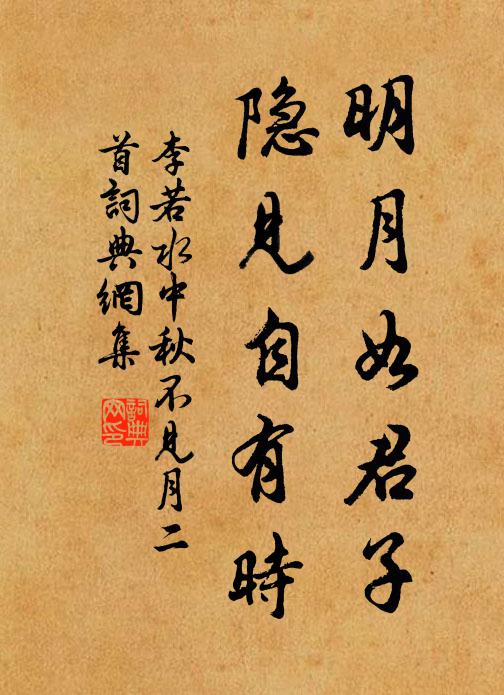 明月如君子
隐見自有時
李若水中秋不見月二
首詞典網集
詞典
网印